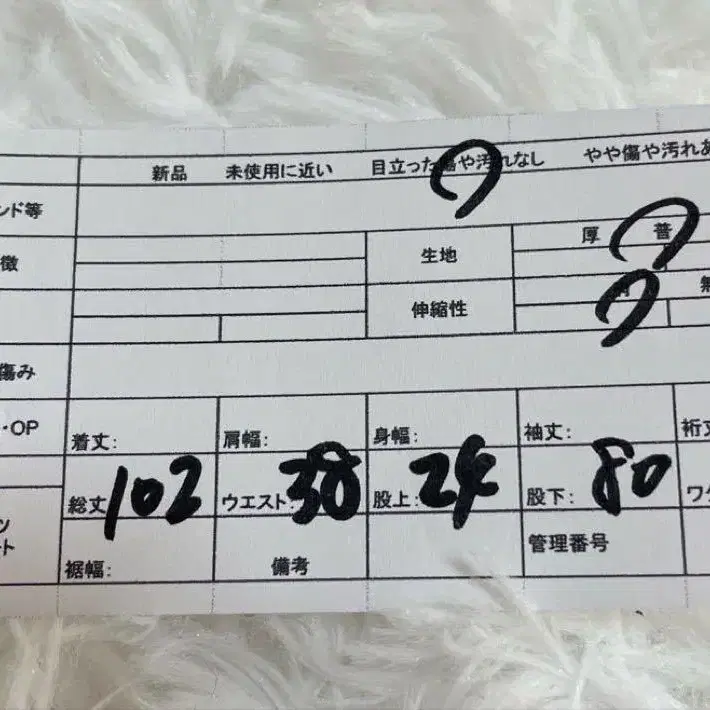 新品 未使用に近い 目立った傷や汚れなし やや傷や汚れあ
ンド等
徴 生地 厚 普
伸縮性 無
傷み
・OP 着丈: 肩幅: 身幅: 袖丈: 裄丈
総丈 102 ウエスト: 38 股上: 24 股下: 80 ワタ
ツ
ート
裾幅: 備考 管理番号